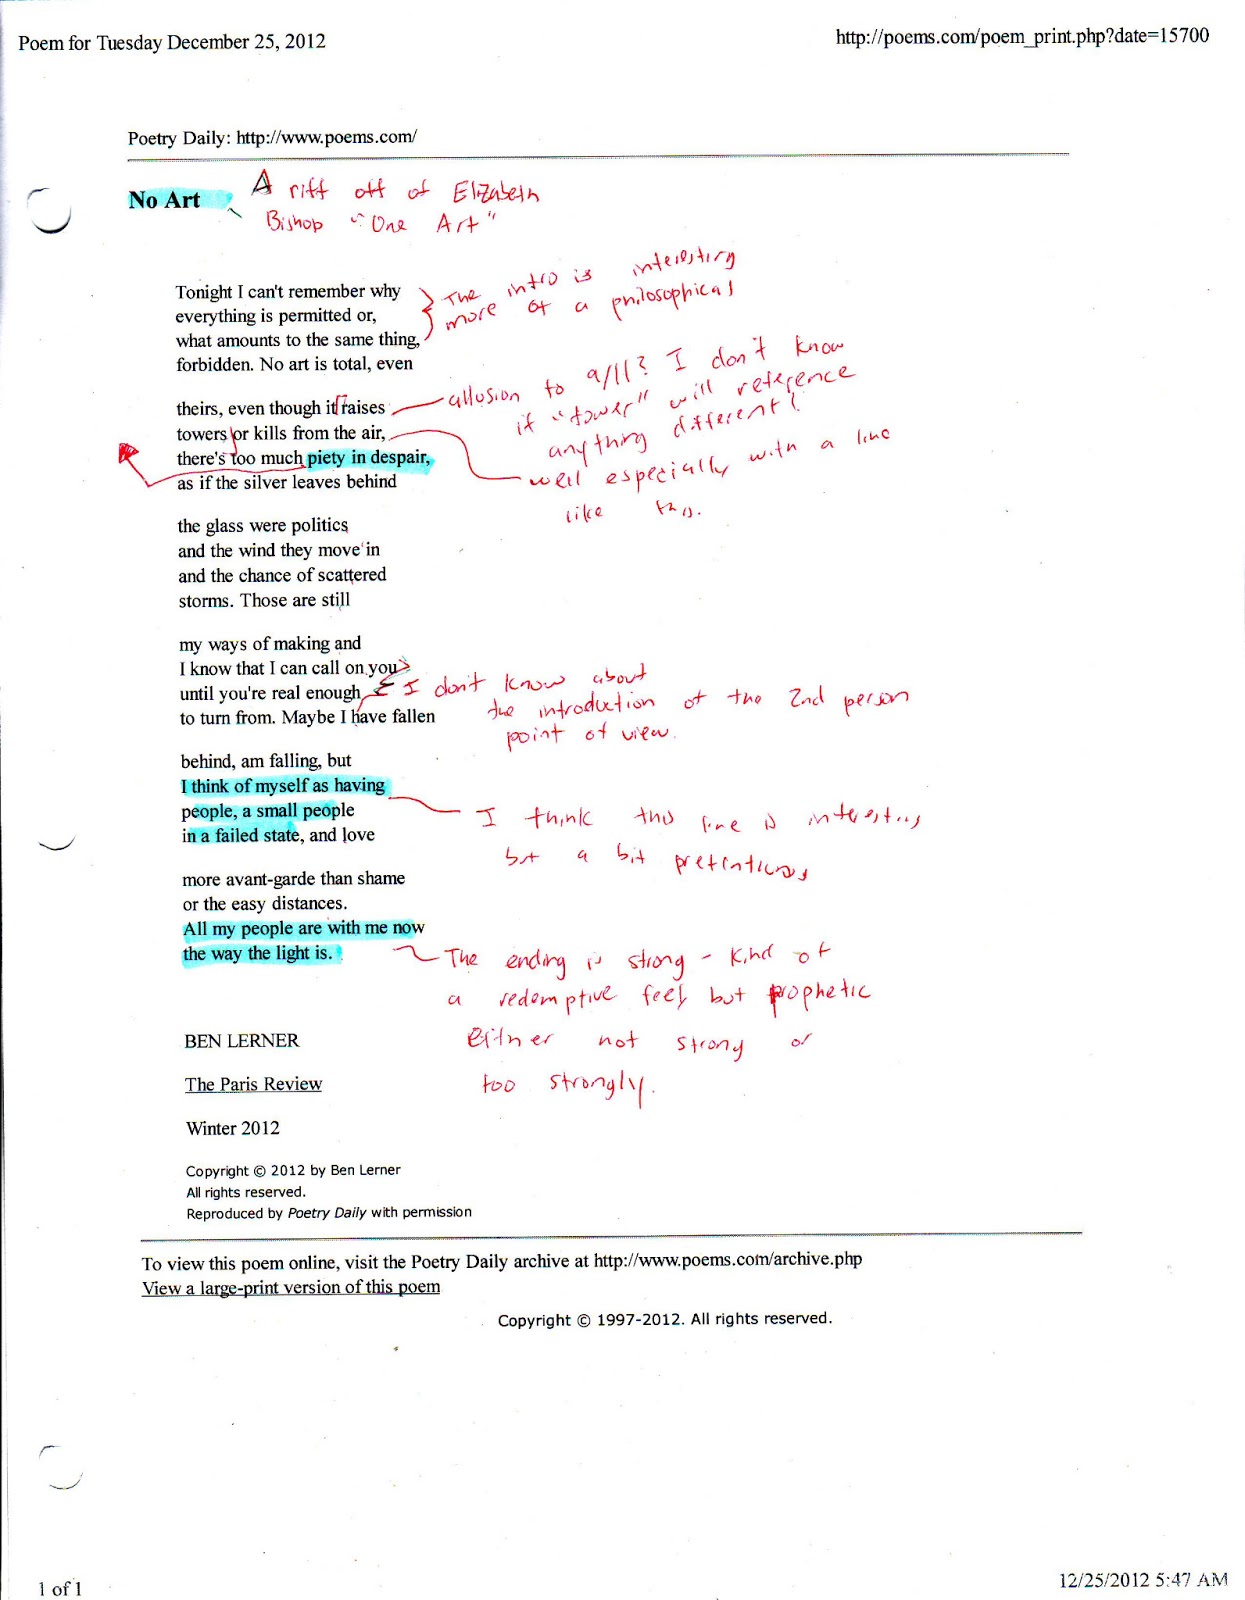 Poem for Tuesday December 25, 2012
http://poems.com/poem_print.php?date=15700
Poetry Daily: http://www.poems.com/
No Art
A riff off of Elizabeth
Bishop "One Art"
Tonight I can't remember why
everything is permitted or,
what amounts to the same thing,
forbidden. No art is total, even
The intro is interesting
more of a philosophical
theirs, even though it raises
towers or kills from the air,
there's too much piety in despair,
as if the silver leaves behind
allusion to 9/11? I don't know
if "tower" will reference
anything different!
well especially with a line
like this.
the glass were politics
and the wind they move in
and the chance of scattered
storms. Those are still
my ways of making and
I know that I can call on you
until you're real enough
to turn from. Maybe I have fallen
I don't know about
the introduction of the 2nd person
point of view.
behind, am falling, but
I think of myself as having
people, a small people
in a failed state, and love
I think this line is interesting
but a bit pretentious
more avant-garde than shame
or the easy distances.
All my people are with me now
the way the light is.
The ending is strong - kind of
a redemptive feel but prophetic
either not strong or
too strongly.
BEN LERNER
The Paris Review
Winter 2012
Copyright © 2012 by Ben Lerner
All rights reserved.
Reproduced by Poetry Daily with permission
To view this poem online, visit the Poetry Daily archive at http://www.poems.com/archive.php
View a large-print version of this poem
Copyright © 1997-2012. All rights reserved.
1 of 1
12/25/2012 5:47 AM